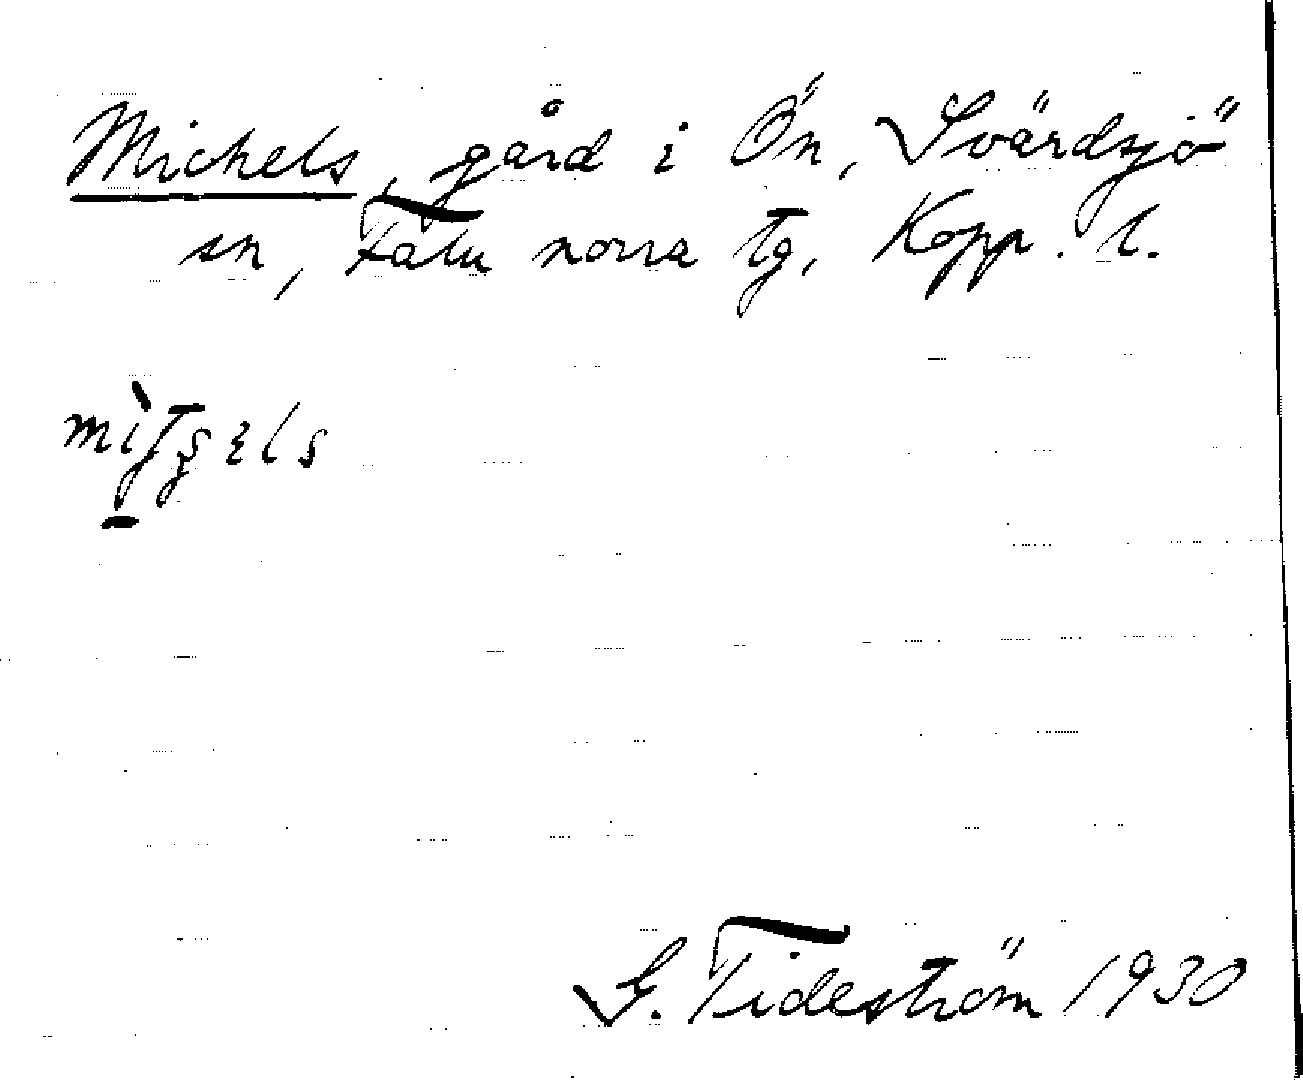 Michels, gård i Ön, Svärdsjö
sn, Falu norra tg, Kopp. l.
G. Tideström 1930